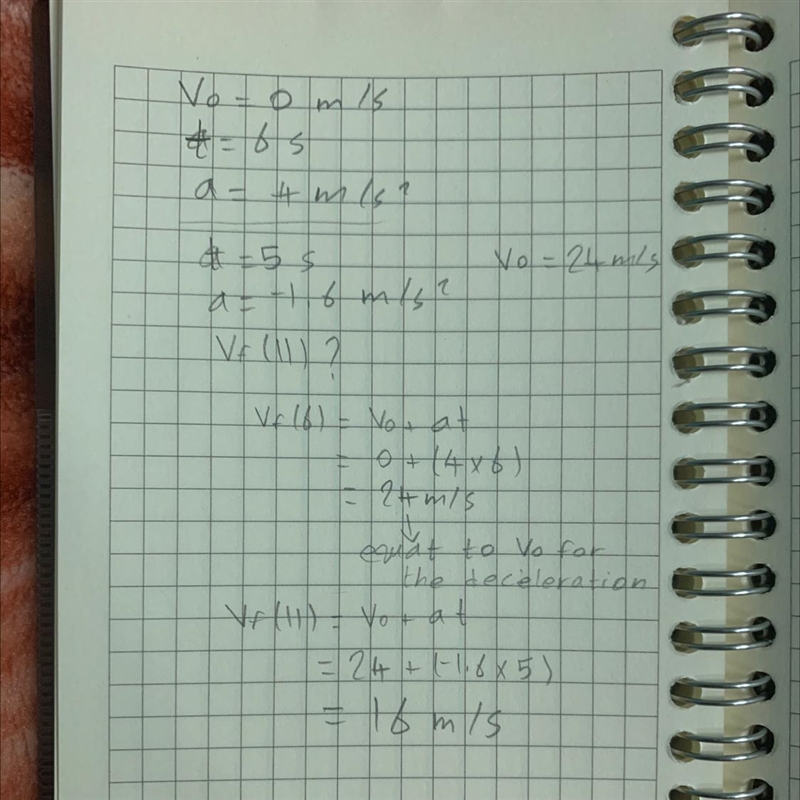 Vo = 0 m/s
t = 6 s
a = 4 m/s²
t = 5 s Vo = 24 m/s
a = -1.6 m/s²
Vf(11)?
Vf(6) = Vo + at
= 0 + (4×6)
= 24 m/s
↓
equat to Vo for
the deceleration
Vf(11) = Vo + at
= 24 + (-1.6×5)
= 16 m/s